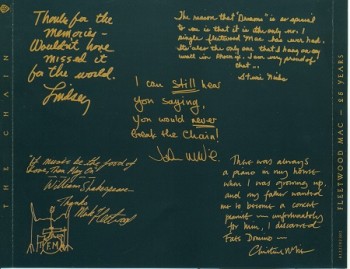 THE CHAIN
Thanks for the
memories –
Wouldn't have
missed it
for the world.
Lindsey
The reason that "Dreams" is so special
to me is that it is the only no. 1
single Fleetwood Mac has ever had.
It's also the only one that I have on my
wall in
I am very proud of
that...
Stevie Nicks
I can still hear
you saying,
you would never
break the chain!
John McVie
"If music be the food of
love, then play on"
William Shakespeare
Thanks
Mick Fleetwood
There was always
a piano in my house
when I was growing up,
and my father wanted
me to become a concert
pianist — unfortunately
for him, I discovered
Fats Domino —
Christine McVie
FLEETWOOD MAC — 25 YEARS